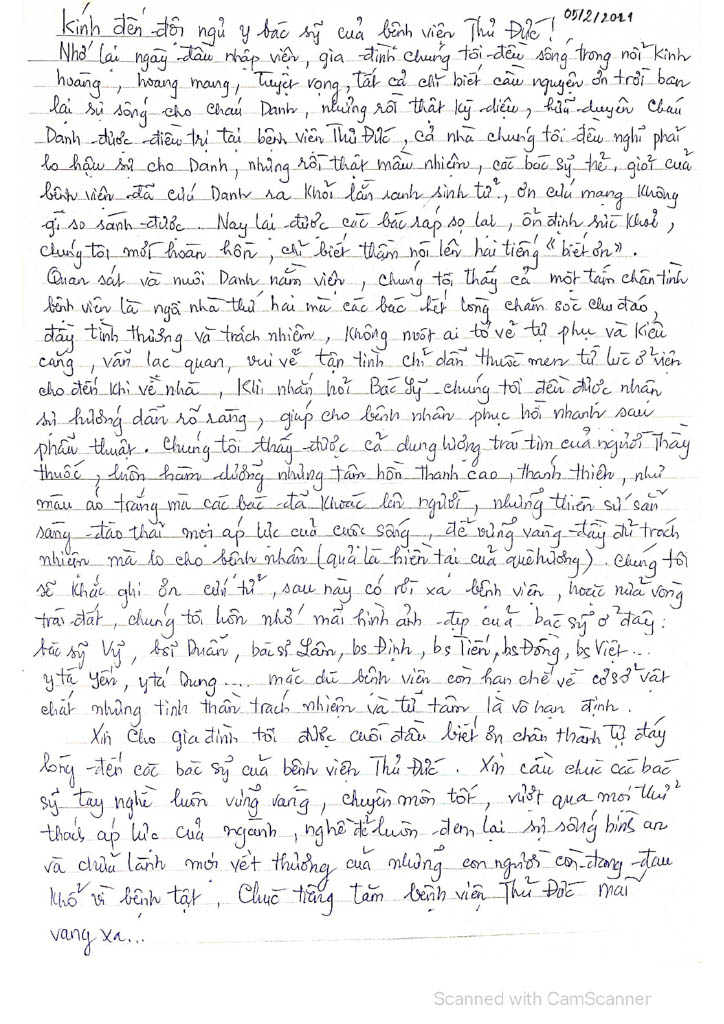 05/2/2021
Kính đến đôi ngủ y bác sỹ của bệnh viện Thủ Đức!
Nhớ lại ngày đầu nhập viện, gia đình chúng tôi đều sống trong nỗi kinh
hoàng, hoang mang, tuyệt vọng, tất cả chỉ biết cầu nguyện ơn trời ban
lại sự sống cho cháu Danh, nhưng rồi thật kỳ diệu, hữu duyên cháu
Danh được điều trị tại bệnh viện Thủ Đức, cả nhà chúng tôi đều nghĩ phải
lo hậu sự cho Danh, nhưng rồi thật mầu nhiệm, các bác sỹ trẻ, giỏi của
bệnh viện đã cứu Danh ra khỏi lằn ranh sinh tử, ơn cứu mạng không
gì so sánh được. Nay lại được các bác ráp sọ lại, ổn định sức khỏe,
chúng tôi mới hoàn hồn, chỉ biết thầm nói lên hai tiếng "biết ơn".
Quan sát và nuôi Danh nằm viện, chúng tôi thấy cả một tấm chân tình
bệnh viện là ngôi nhà thứ hai mà các bác hết lòng chăm sóc chu đáo,
đầy tình thương và trách nhiệm, không một ai tỏ vẻ tự phụ và kiêu
căng, vẫn lạc quan, vui vẻ tận tình chỉ dẫn thuốc men từ lúc ở viện
cho đến khi về nhà, khi nhắn hỏi Bác sỹ chúng tôi đều được nhận
sự hướng dẫn rõ ràng, giúp cho bệnh nhân phục hồi nhanh sau
phẫu thuật. Chúng tôi thấy được cả dung lượng trái tim của người Thầy
thuốc, luôn hàm dưỡng những tâm hồn thanh cao, thánh thiện, như
màu áo trắng mà các bác đã khoác lên người, những thiên sứ sẵn
sàng đào thải mọi áp lực của cuộc sống, để vững vàng đầy đủ trách
nhiệm mà lo cho bệnh nhân (quả là hiền tài của quê hương). Chúng tôi
sẽ khắc ghi ơn cứu tử, sau này có rời xa bệnh viện, hoặc nửa vòng
trái đất, chúng tôi luôn nhớ mãi hình ảnh đẹp của bác sỹ ở đây:
bác sỹ Vỹ, bsĩ Duẩn, bác sĩ Lâm, bs Định, bs Tiến, bs Đồng, bs Việt...
y tá Yến, y tá Dung.... mặc dù bệnh viện còn hạn chế về cơ sở vật
chất nhưng tinh thần trách nhiệm và từ tâm là vô hạn định.
Xin cho gia đình tôi được cuối đầu biết ơn chân thành từ đáy
lòng đến các bác sỹ của bệnh viện Thủ Đức. Xin cầu chúc các bác
sỹ tay nghề luôn vững vàng, chuyên môn tốt, vượt qua mọi thử
thách áp lực của ngành, nghề để luôn đem lại sự sống bình an
và chữa lành mọi vết thương của những con người còn đang đau
khổ vì bệnh tật, Chúc tiếng tăm bệnh viện Thủ Đức mãi
vang xa...
Scanned with CamScanner